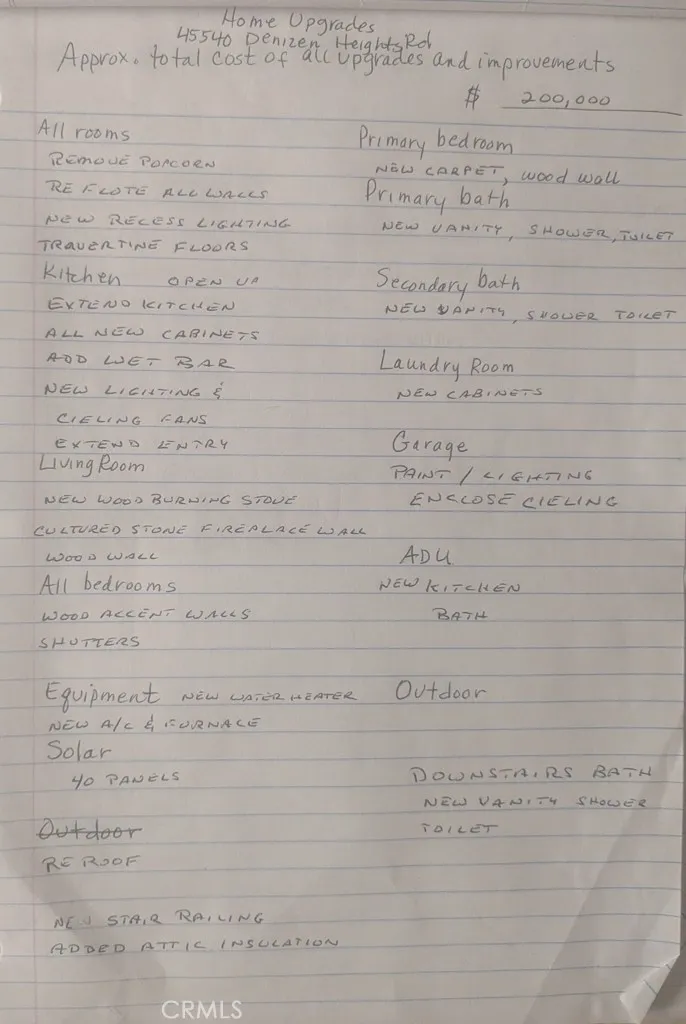 Home Upgrades
45540 Denizen Heights Rd
Approx. total cost of all upgrades and improvements
$ 200,000
All rooms
REMOVE POPCORN
RE FLOTE ALL WALLS
NEW RECESS LIGHTING
TRAVERTINE FLOORS
Kitchen OPEN UP
EXTEND KITCHEN
ALL NEW CABINETS
ADD WET BAR
NEW LIGHTING &
CIELING FANS
EXTEND ENTRY
Living Room
NEW WOOD BURNING STOVE
CULTURED STONE FIREPLACE WALL
WOOD WALL
All bedrooms
WOOD ACCENT WALLS
SHUTTERS
Equipment NEW WATER HEATER
NEW A/C & FURNACE
Solar
40 PANELS
Outdoor
RE ROOF
NEW STAIR RAILING
ADDED ATTIC INSULATION
Primary bedroom
NEW CARPET, wood wall
Primary bath
NEW VANITY, SHOWER, TOILET
Secondary bath
NEW VANITY, SHOWER TOILET
Laundry Room
NEW CABINETS
Garage
PAINT / LIGHTING
ENCLOSE CIELING
ADU
NEW KITCHEN
BATH
Outdoor
DOWNSTAIRS BATH
NEW VANITY SHOWER
TOILET
CRMLS